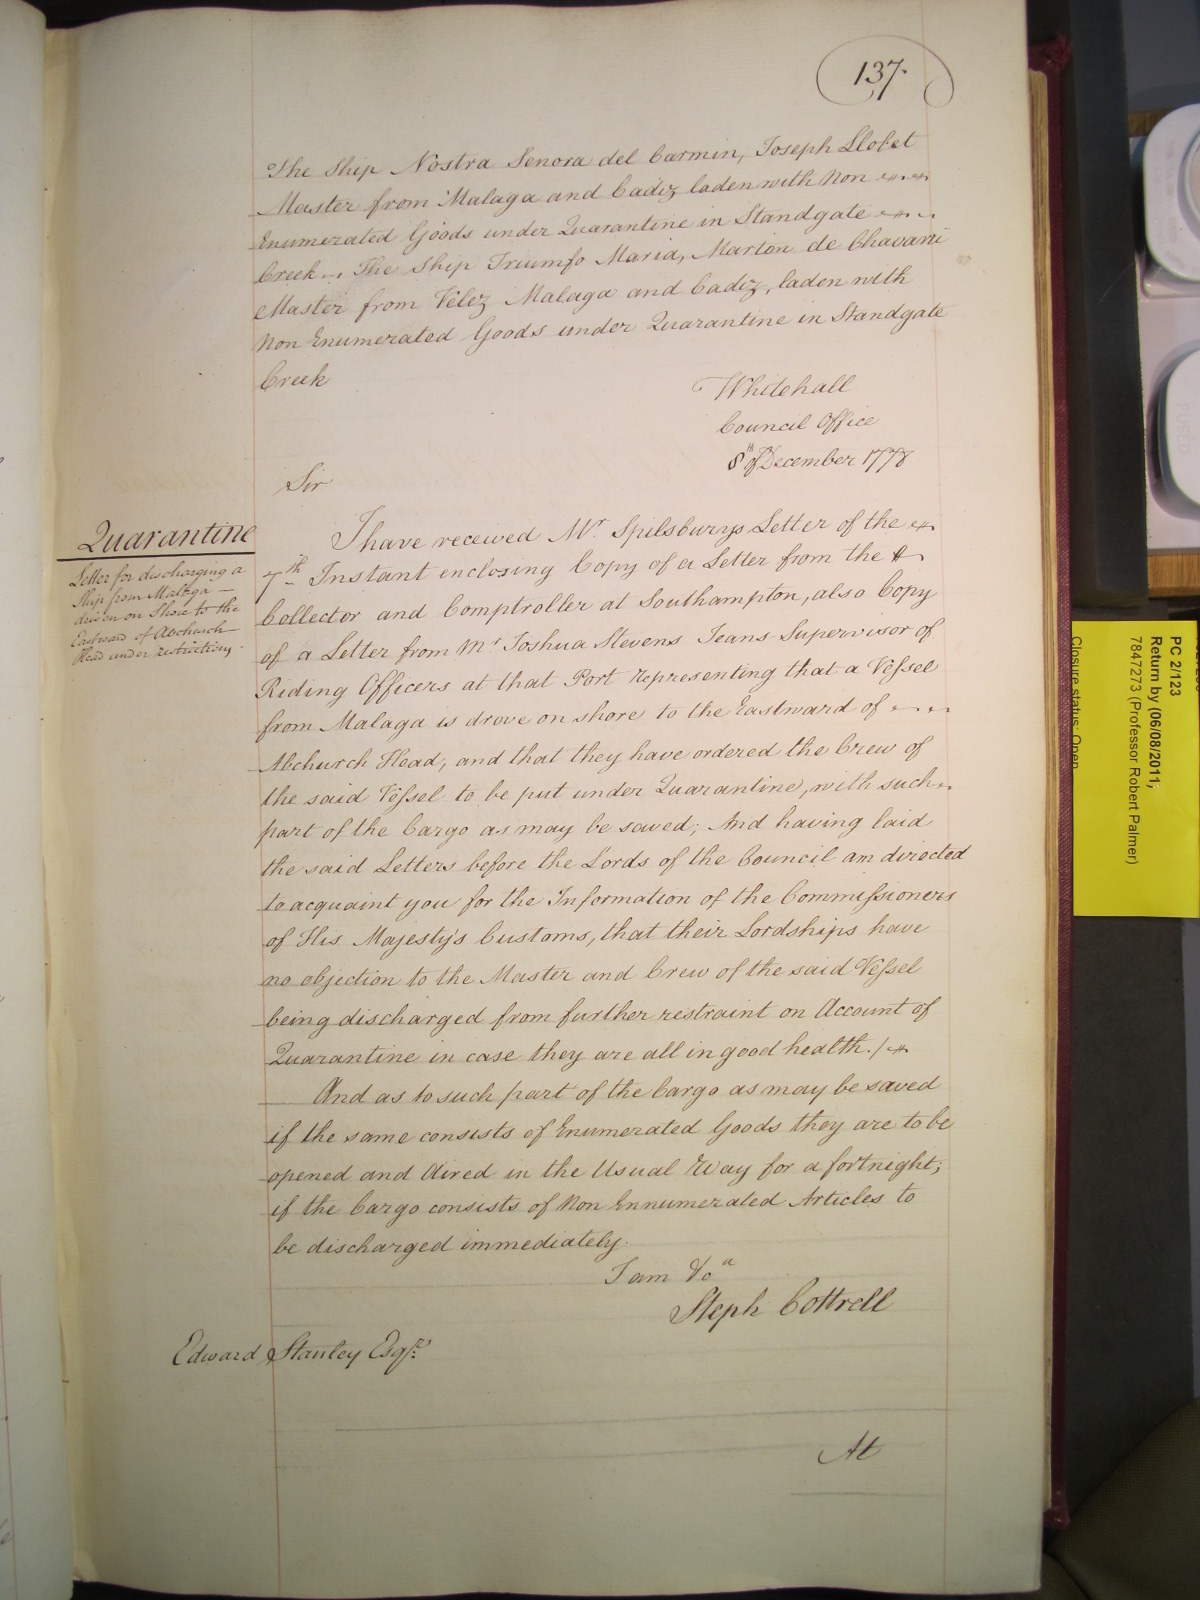 137.
The Ship Nostra Senora del Carmin, Joseph Llobet
Master from Malaga and Cadiz laden with Non
Enumerated Goods under Quarantine in Standgate
Creek. The Ship Triumfo Maria, Marton de Chavarri
Master from Velez Malaga and Cadiz, laden with
Non Enumerated Goods under Quarantine in Standgate
Creek
Whitehall
Council Office
8th of December 1778
Sir
Quarantine
Letter for discharging a
Ship from Malaga
driven on Shore to the
Eastward of Abchurch
Head under restrictions.
I have received Mr. Spilsburys Letter of the
7th Instant enclosing Copy of a Letter from the
Collector and Comptroller at Southampton, also Copy
of a Letter from Mr Joshua Stevens Jeans Supervisor of
Riding Officers at that Port representing that a Vessel
from Malaga is drove on shore to the Eastward of
Abchurch Head, and that they have ordered the Crew of
the said Vessel to be put under Quarantine, with such
part of the Cargo as may be saved; And having laid
the said Letters before the Lords of the Council am directed
to acquaint you for the Information of the Commissioners
of His Majesty's Customs, that their Lordships have
no objection to the Master and Crew of the said Vessel
being discharged from further restraint on Account of
Quarantine in case they are all in good health./
And as to such part of the Cargo as may be saved
if the same consists of Enumerated Goods they are to be
opened and Aired in the Usual Way for a fortnight;
if the Cargo consists of Non Ennumerated Articles to
be discharged immediately.
I am &ca
Steph Cottrell
Edward Stanley Esqr.
At
PC 2/123
Return by (06/08/2011;
7847273 (Professor Robert Palmer)
Closure status: Open